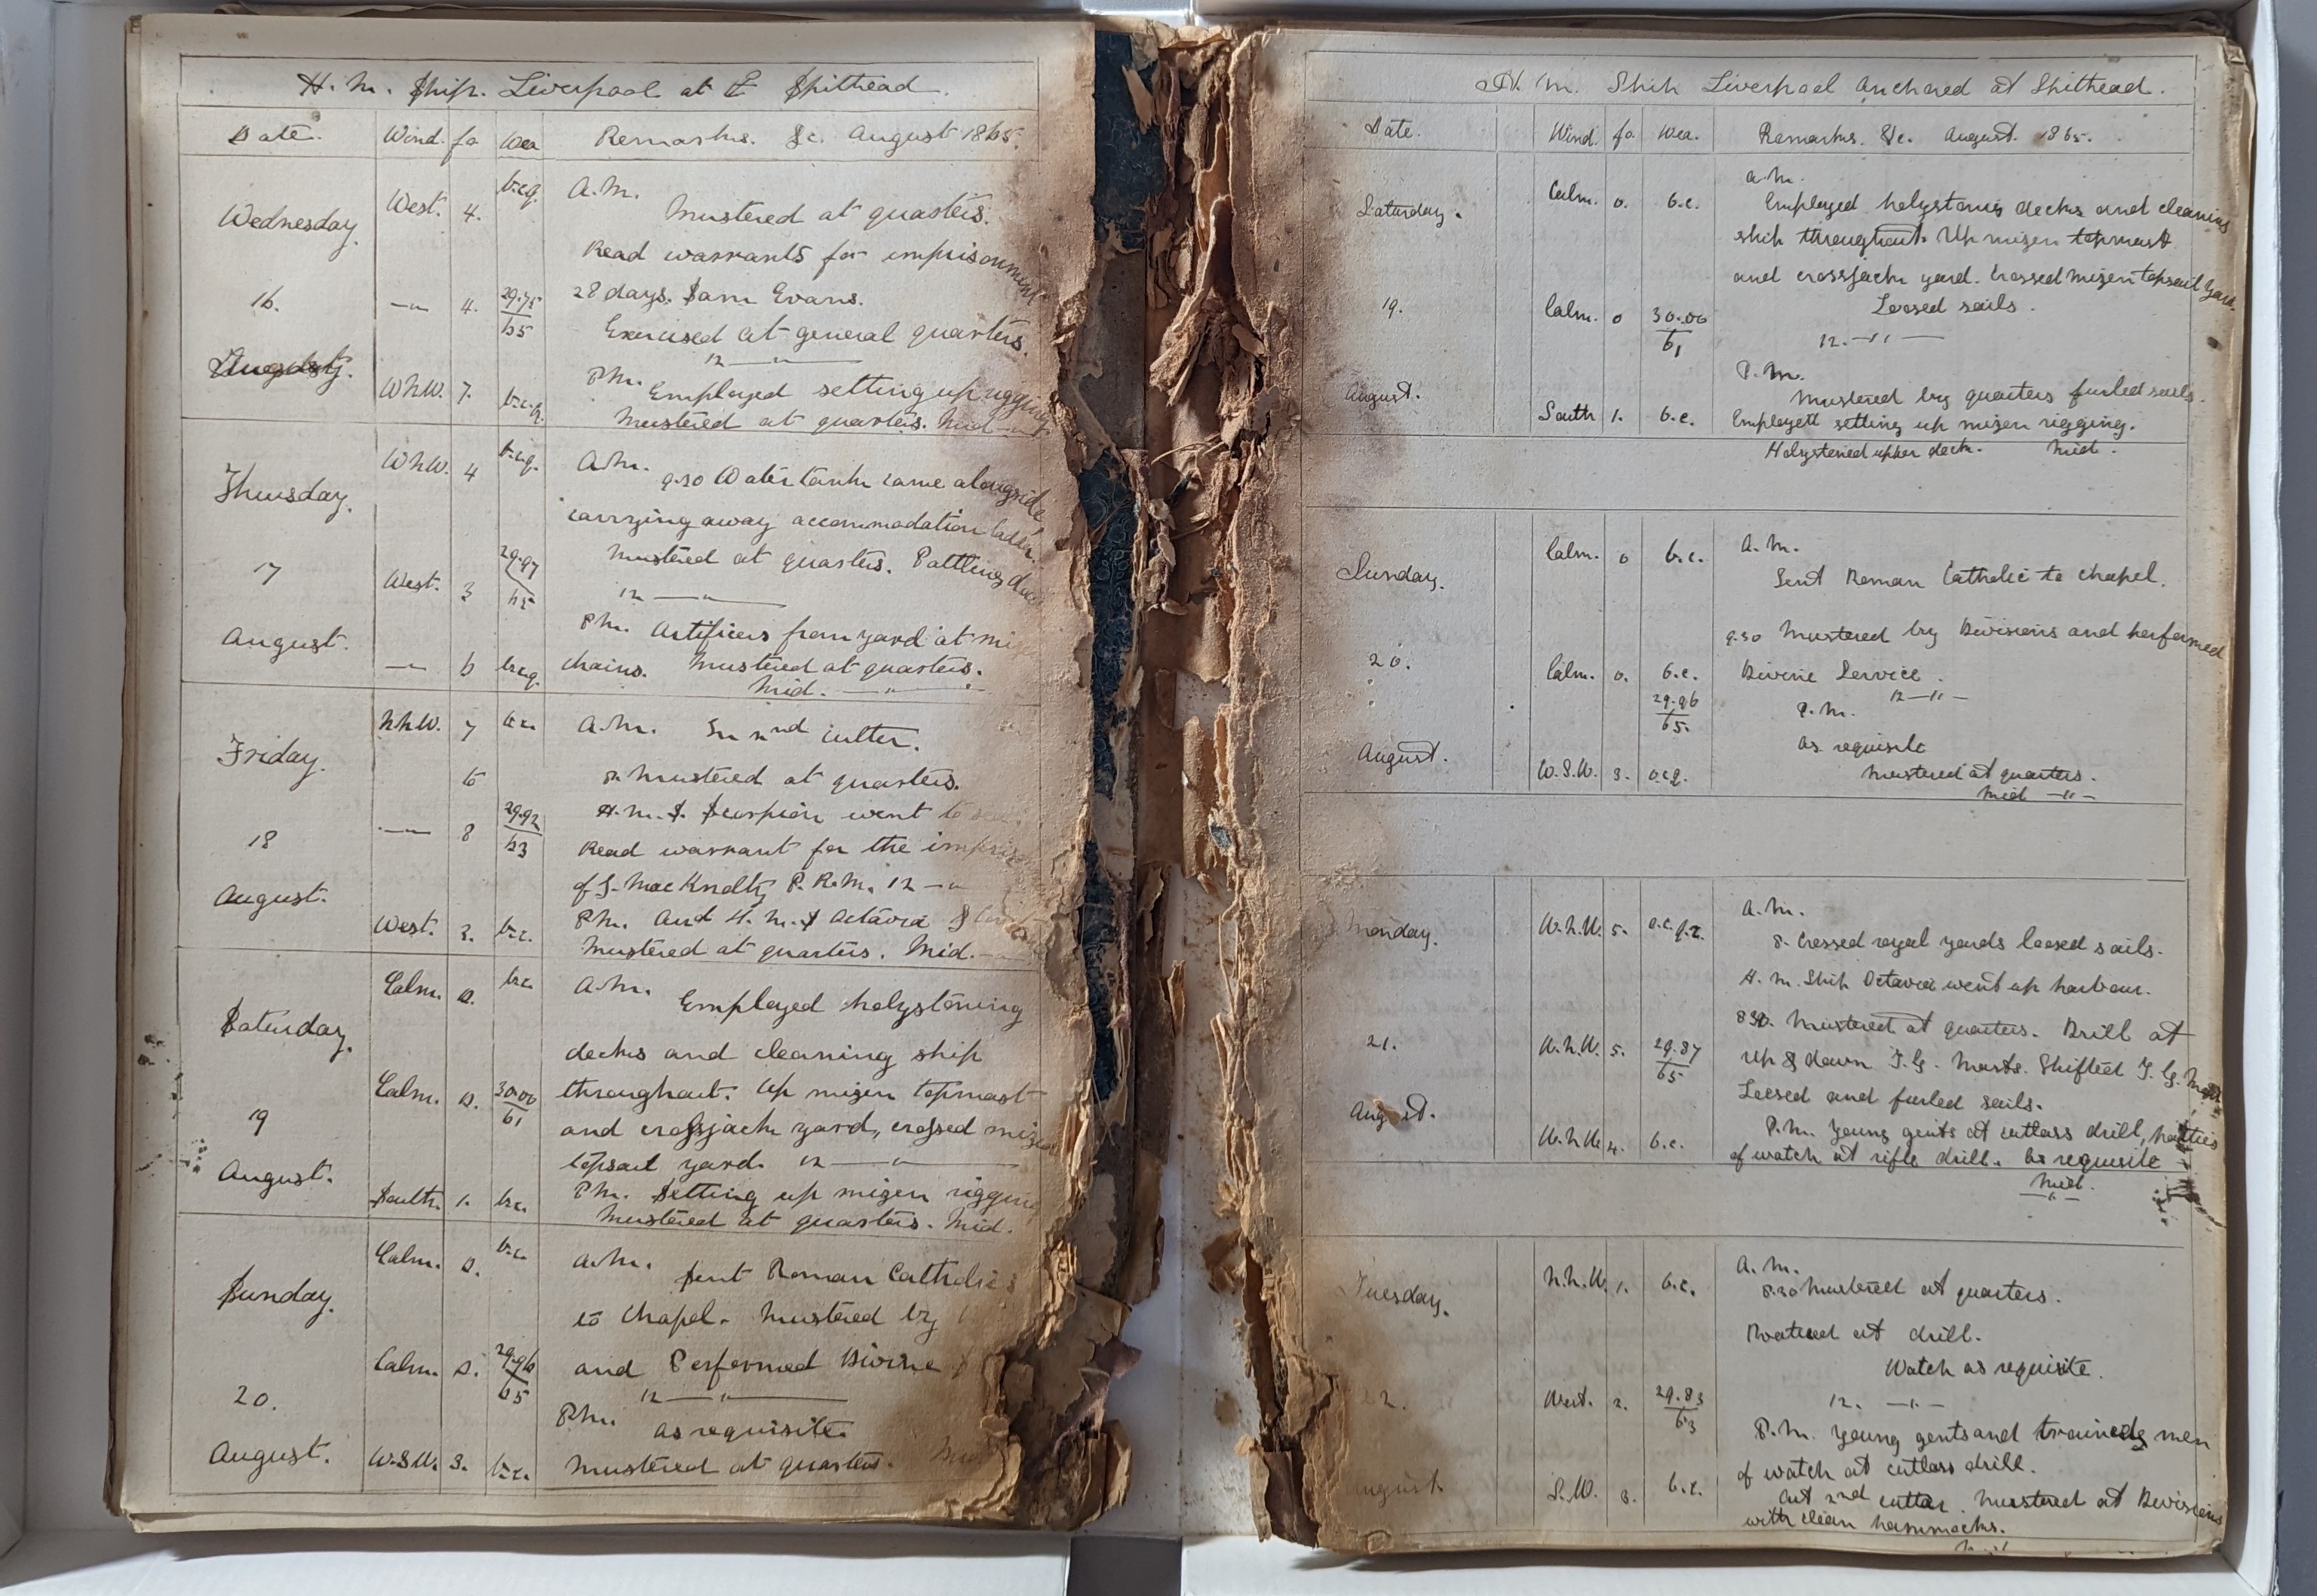 H. M. Ship. Liverpool at Spithead.
Date. Wind. fo Wea Remarks. &c. August 1865.
Wednesday West. 4. b.c.q. A.M.
Mustered at quarters.
Read warrants for imprisonment
16. —"— 4. 29.75/65 28 days. Sam Evans.
Exercised at general quarters.
12 —"—
August. WNW. 7. b.c.q. PM. Employed setting up rigging
Mustered at quarters. Mid —"—
Thursday WNW. 4 b.c.q. A.M. 9.30 Water tank came alongside
carrying away accommodation ladder
17 West. 3 29.97/65 Mustered at quarters.
12 —"—
August. PM. Artificers from yard at
—"— 6 b.c.q. chains. Mustered at quarters.
Mid. —"—
Friday NNW. 7 b.c. A.M. In 2nd cutter.
6 8. Mustered at quarters.
18 —"— 8 29.92/63 H.M.S. Scorpion went to
Read warrant for the
of J. P.R.M. 12 —"—
August. West. 3. b.c. PM. And H.M.S Octavia
Mustered at quarters. Mid.
Saturday Calm. 0. b.c. A.M. Employed holystoning
decks and cleaning ship
19 Calm. 0. 30.00/61 throughout. Up mizen topmast
and crossjack yard, crossed mizen
topsail yard. 12 —"—
August. South. 1. b.c. PM. Setting up mizen rigging
Mustered at quarters. Mid.
Sunday Calm. 0. b.c. A.M. Sent Roman Catholics
to Chapel. Mustered by
20. Calm. 0. 29.96/65 and Performed Divine
12 —"—
PM. as requisite
August. W.S.W. 3. b.c. Mustered at quarters.
H. M. Ship Liverpool anchored at Spithead.
Date. Wind. fo. Wea. Remarks. &c. August. 1865.
Saturday. Calm. 0. b.c. a.m.
Employed holystonig decks and cleaning
ship throughout. Up mizen topmast
and crossjack yard. Crossed mizen topsail yard.
19. Calm. 0 30.00/61 Loosed sails.
12. —"—
P.M.
August. Mustered by quarters furled sails.
South 1. b.c. Employed setting up mizen rigging.
Holystoned upper deck. Mid.
Sunday. Calm. 0 b.c. A.M.
Sent Roman Catholic to Chapel.
9.30 Mustered by Divisions and performed
20. Calm. 0. b.c. Divine Service.
29.96/65. 12 —"—
P.M.
As requisite
August. W.S.W. 3. o.c.q. Mustered at quarters.
Mid —"—
Monday. W.N.W. 5. o.c.q.r. A.M.
8. Crossed royal yards loosed sails.
H. M. Ship Octavia went up harbour.
8 30. Mustered at quarters. Drill at
21. W.N.W. 5. 29.87/65 Up & down T.G. Masts. Shifted T.G. Mast.
Loosed and furled sails.
August. W.N.W 4. b.c. P.M. Young gents at cutlass drill, parties
of watch at rifle drill. As requisite
Mid.
—"—
Tuesday. N.N.W. 1. b.c. A.M.
8.30 Mustered at quarters.
at drill.
Watch as requisite.
22. West. 2. 29.83/63 12. —"—
P.M. Young gents and men
of watch at cutlass drill.
August S.W. 3. b.c. Out 2nd cutter. Mustered at Divisions
with clean hammocks.